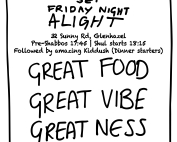 SET
FRIDAY NIGHT
ALIGHT
32 Sunny Rd, Glenhazel
Pre-Shabbos 17:45 | Shul starts 18:15
Followed by amazing Kiddush (Dinner starters)
GREAT FOOD
GREAT VIBE
GREAT NESS